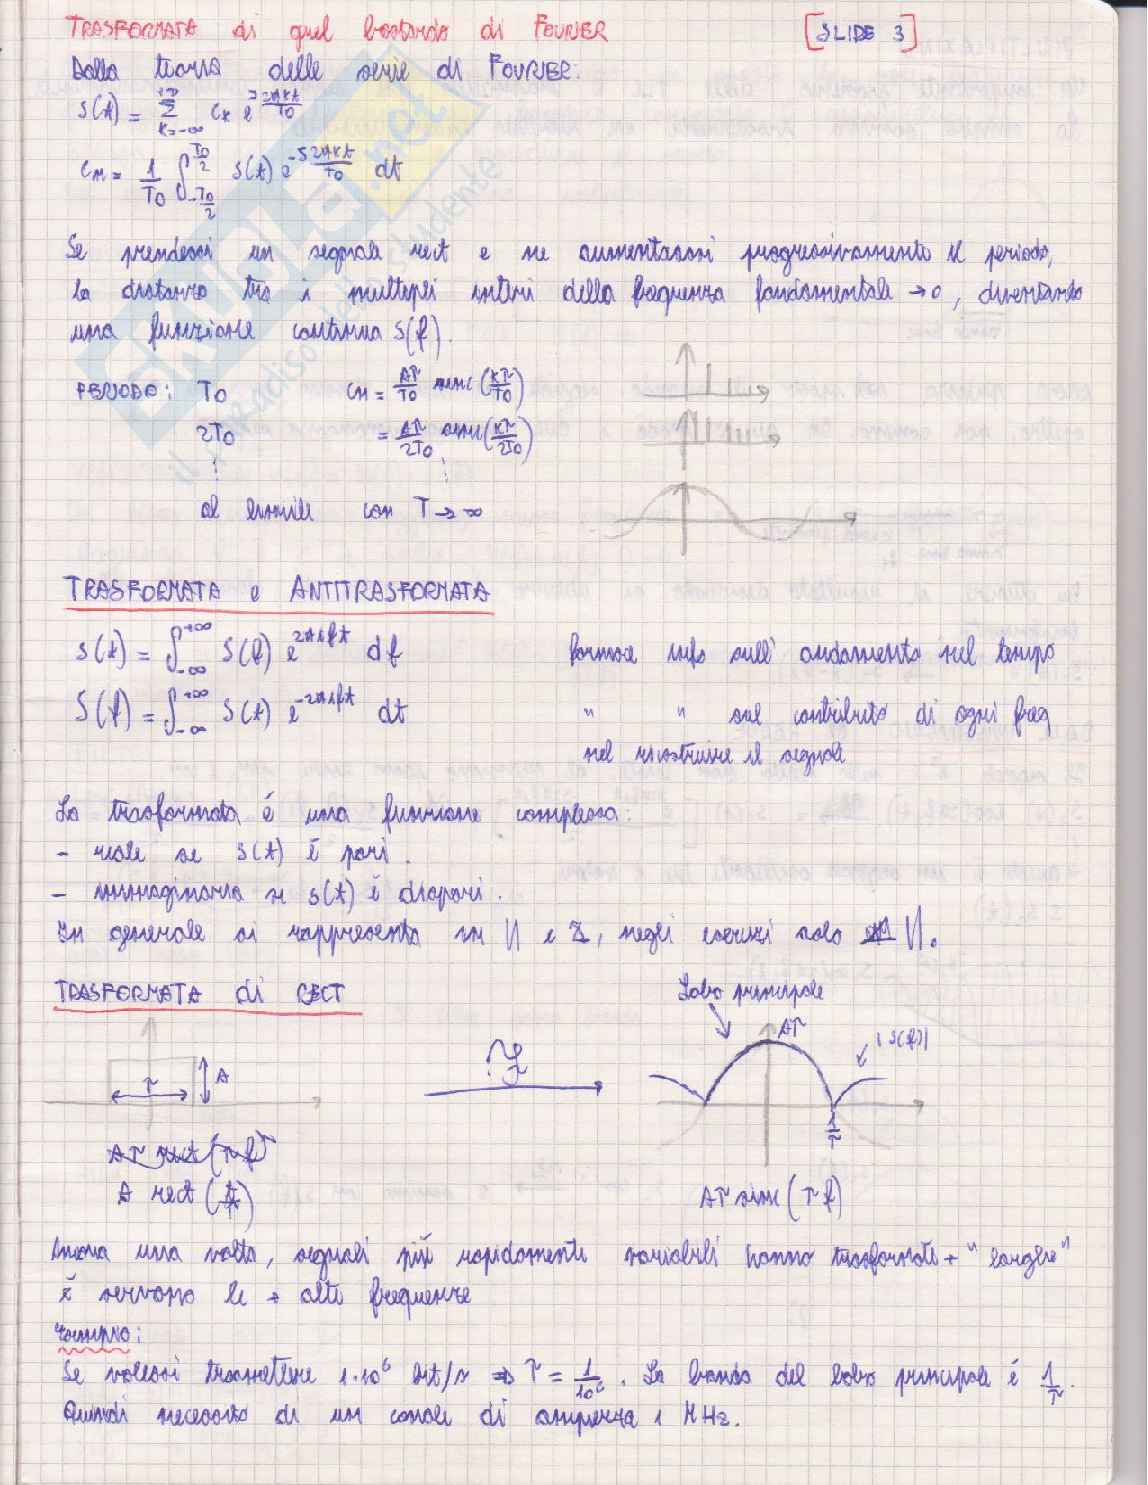 TRASFORMATA di quel bastardo di FOURIER [SLIDE 3]
Dalla teoria delle serie di FOURIER:
s(t) = Σ_{k=-∞}^{+∞} c_k e^{j 2πkt/T0}
c_n = 1/T0 ∫_{-T0/2}^{T0/2} s(t) e^{-j 2πkt/T0} dt
Se prendessi un segnale rect e ne aumentassi progressivamente il periodo,
la distanza tra i multipli interi della frequenza fondamentale → 0, diventando
una funzione continua S(f).
PERIODO: T0 c_n = Aτ/T0 sinc(kτ/T0)
2T0 = Aτ/2T0 sinc(kτ/2T0)
al limite con T → ∞
TRASFORMATA e ANTITRASFORMATA
s(t) = ∫_{-∞}^{+∞} S(f) e^{2πift} df fornisce info sull'andamento nel tempo
S(f) = ∫_{-∞}^{+∞} s(t) e^{-2πift} dt " " sul contributo di ogni freq
nel ricostruire il segnale
La trasformata é una funzione complessa:
- reale se s(t) é pari.
- immaginaria se s(t) é dispari.
In generale si rappresenta in | | e ∠, negli esercizi solo | |.
TRASFORMATA di RECT
Lobo principale
Aτ
|S(f)|
τ
A
F
1/τ
Aτ rect(τf)
A rect(t/τ)
Aτ sinc(τf)
Ancora una volta, segnali più rapidamente variabili hanno trasformate + "larghe"
e servono le + alte frequenze
Esempio:
Se volessi trasmettere 1·10^6 bit/s ⇒ τ = 1/10^6. La banda del lobo principale é 1/τ.
Quindi necessito di un canale di ampiezza 1 MHz.
SKUOLA.net
il paradiso dello studente